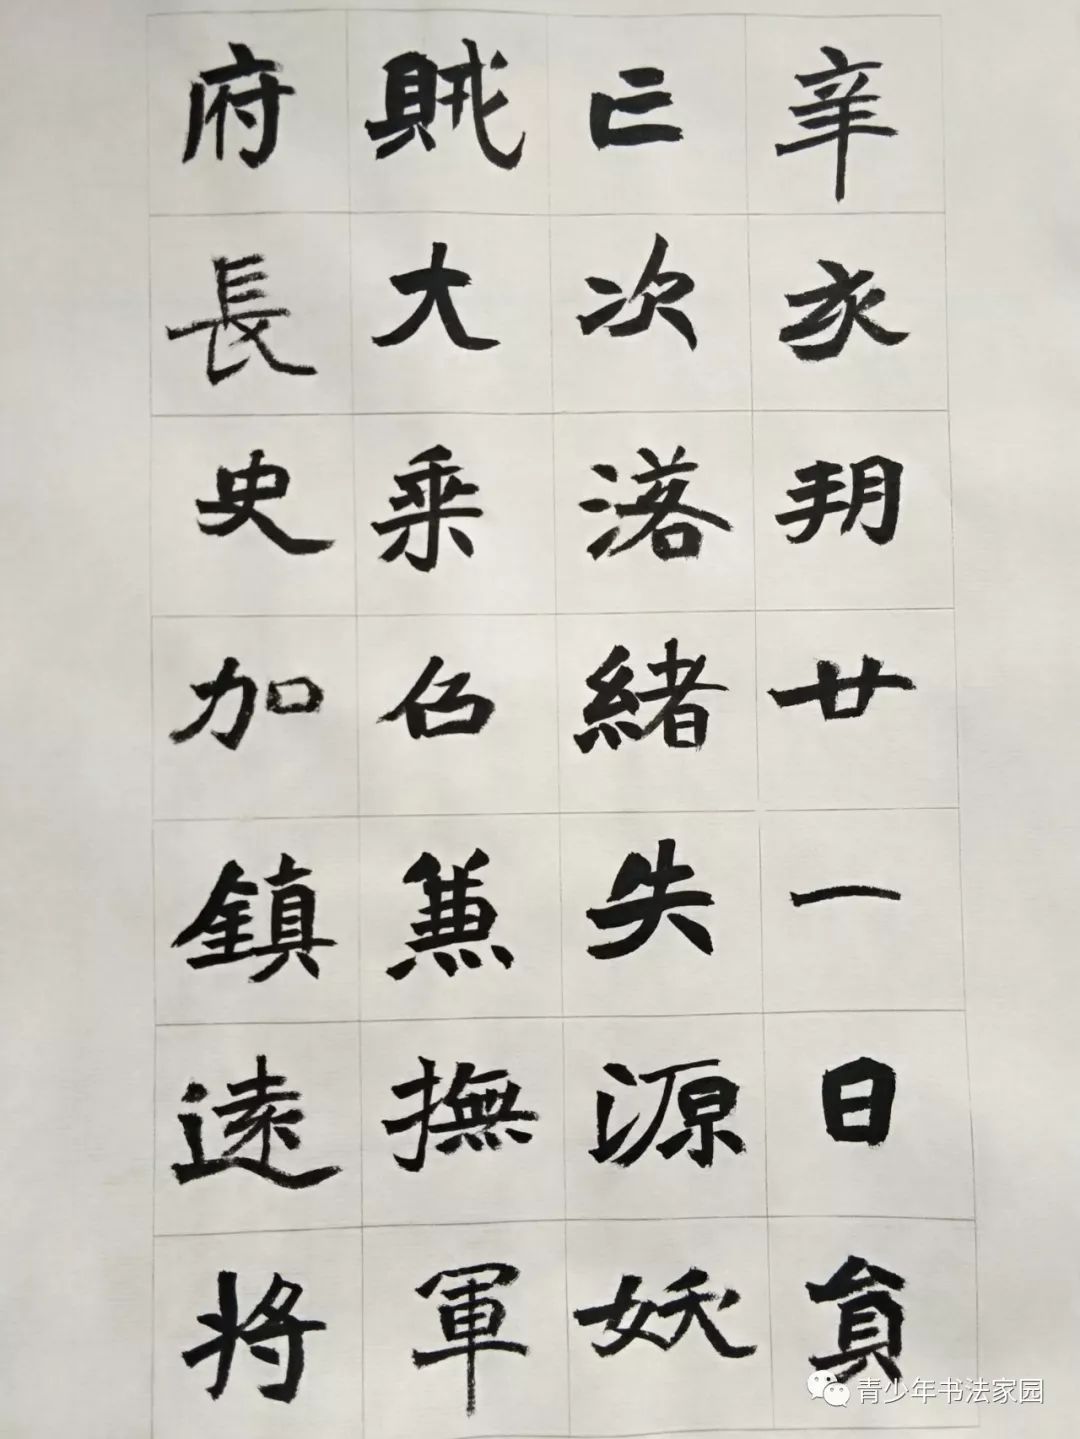 辛亥朔廿一日
亡次落緒失源妖
賊大乘仍兼撫軍
府長史加鎮遠將
青少年书法家园